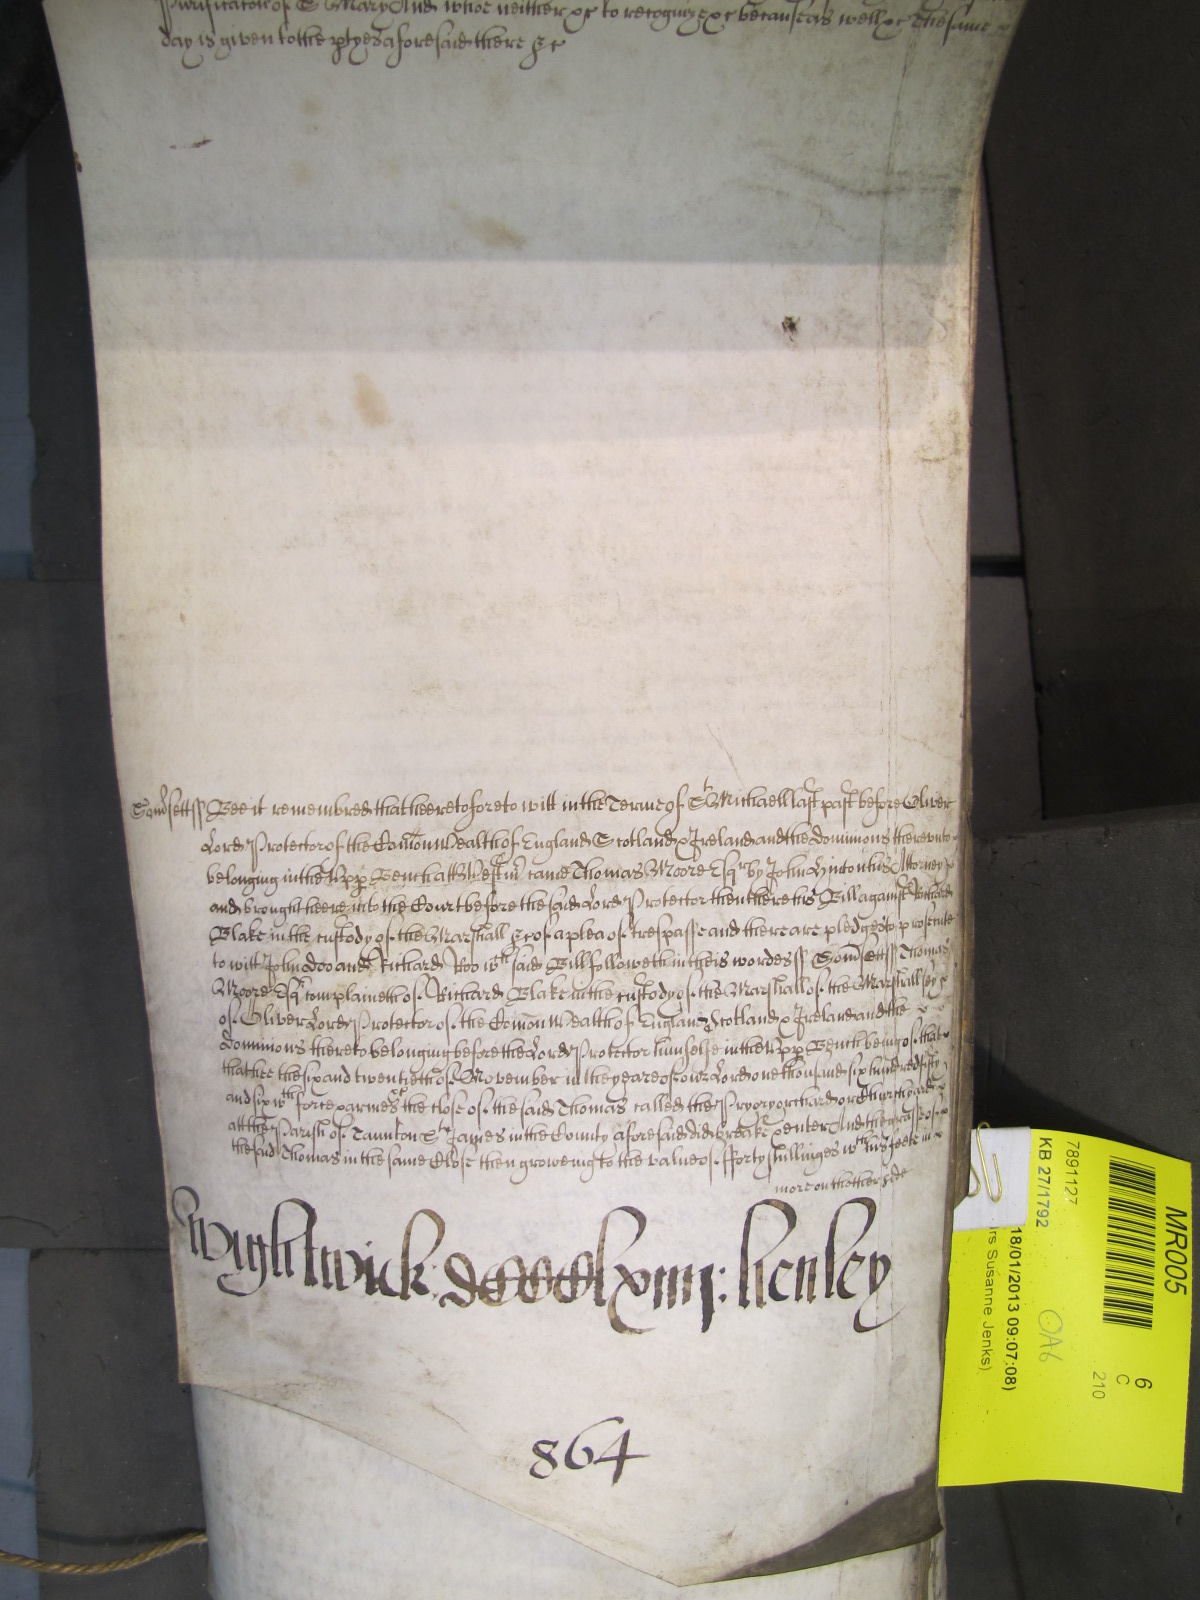 Purificacon of S Mary And whoe neither &c to recognize &c because as well &c The same
day is given to the ptyes aforesaid there &c
Somsett ss Bee it remembred that heeretofore to witt in the Terme of St Michaell last past before Oliver
Lord Protector of the Comon Wealth of England Scotland & Ireland and the dominions thereunto
belonging in the Upp Bench att Westmr came Thomas Moore Esqr by John Hinton his Attorney
and brought heere into the Court before the said Lord Protector then there his Bill against Richard
Blake in the custody of the Marshall &c of a plea of trespasse and there are pledges to prosecute
to witt John Doo and Richard Roo wch said Bill followeth in theis wordes ss Somsett ss Thomas
Moore Esqr complaineth of Richard Blake in the custody of the Marshall of the Marshallsey
of Oliver Lord Protector of the Comon Wealth of England Scotland & Ireland and the
dominions thereto belonging before the Lord Protector himselfe in the Upp Bench being of that
that hee the six and twentieth of November in the yeare of our Lord one thousand six hundred fifty
and six wth force & armes the close of the said Thomas called the Pryory orchard or
att the Parish of Taunton St James in the County aforesaid did breake & enter And the grasse of
the said Thomas in the same Close then groweing to the value of fforty shillinges wth his feete in
more on thother side
Wightwick: dccclxiiij: henley
864
MR005
6
C
210
7891127
KB 27/1792
18/01/2013 09:07:08)
OA6
rs Susanne Jenks)